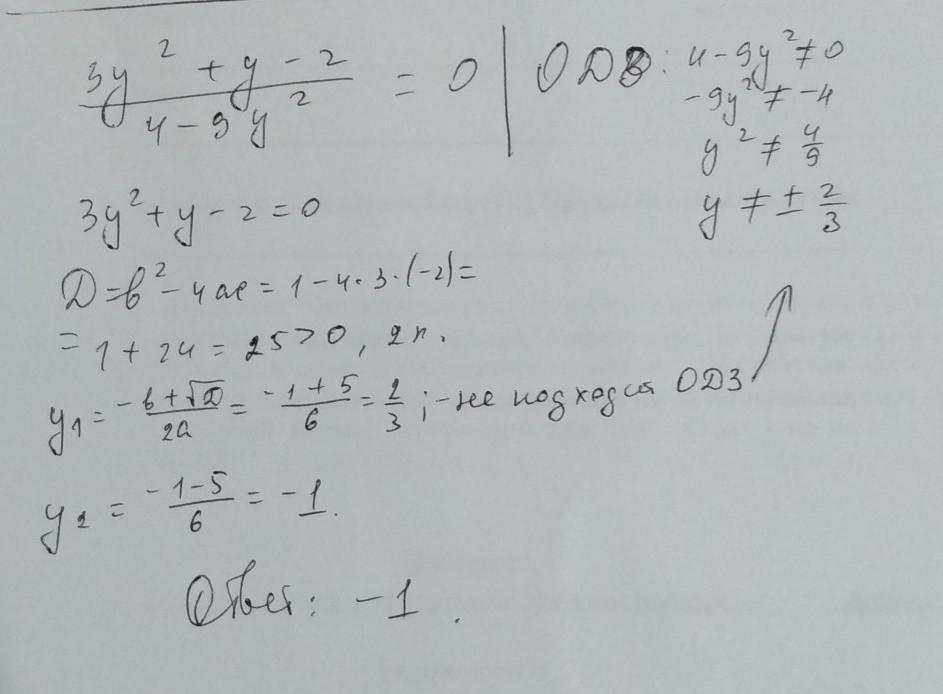 (3y² + y - 2)/(4 - 9y²) = 0 | ОДЗ: 4 - 9y² ≠ 0
-9y² ≠ -4
y² ≠ 4/9
y ≠ ± 2/3
3y² + y - 2 = 0
D = b² - 4ac = 1 - 4·3·(-2) =
= 1 + 24 = 25 > 0, 2к.
y₁ = (-b + √D)/2a = (-1 + 5)/6 = 2/3; - не подходит ОДЗ
y₂ = (-1 - 5)/6 = -1.
Ответ: -1.